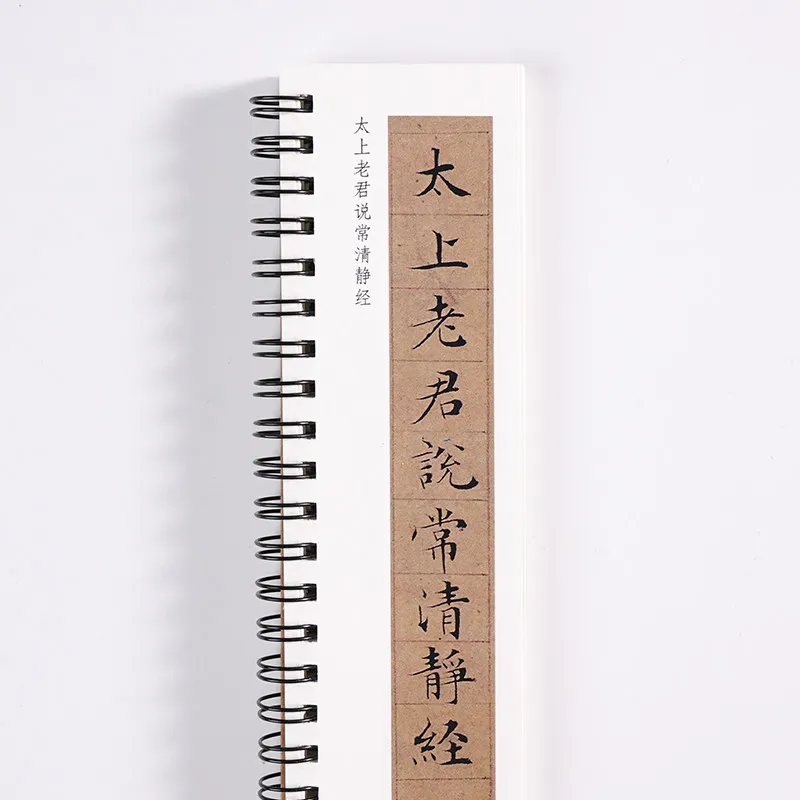 太上老君說常清靜經
太上老君说常清静经